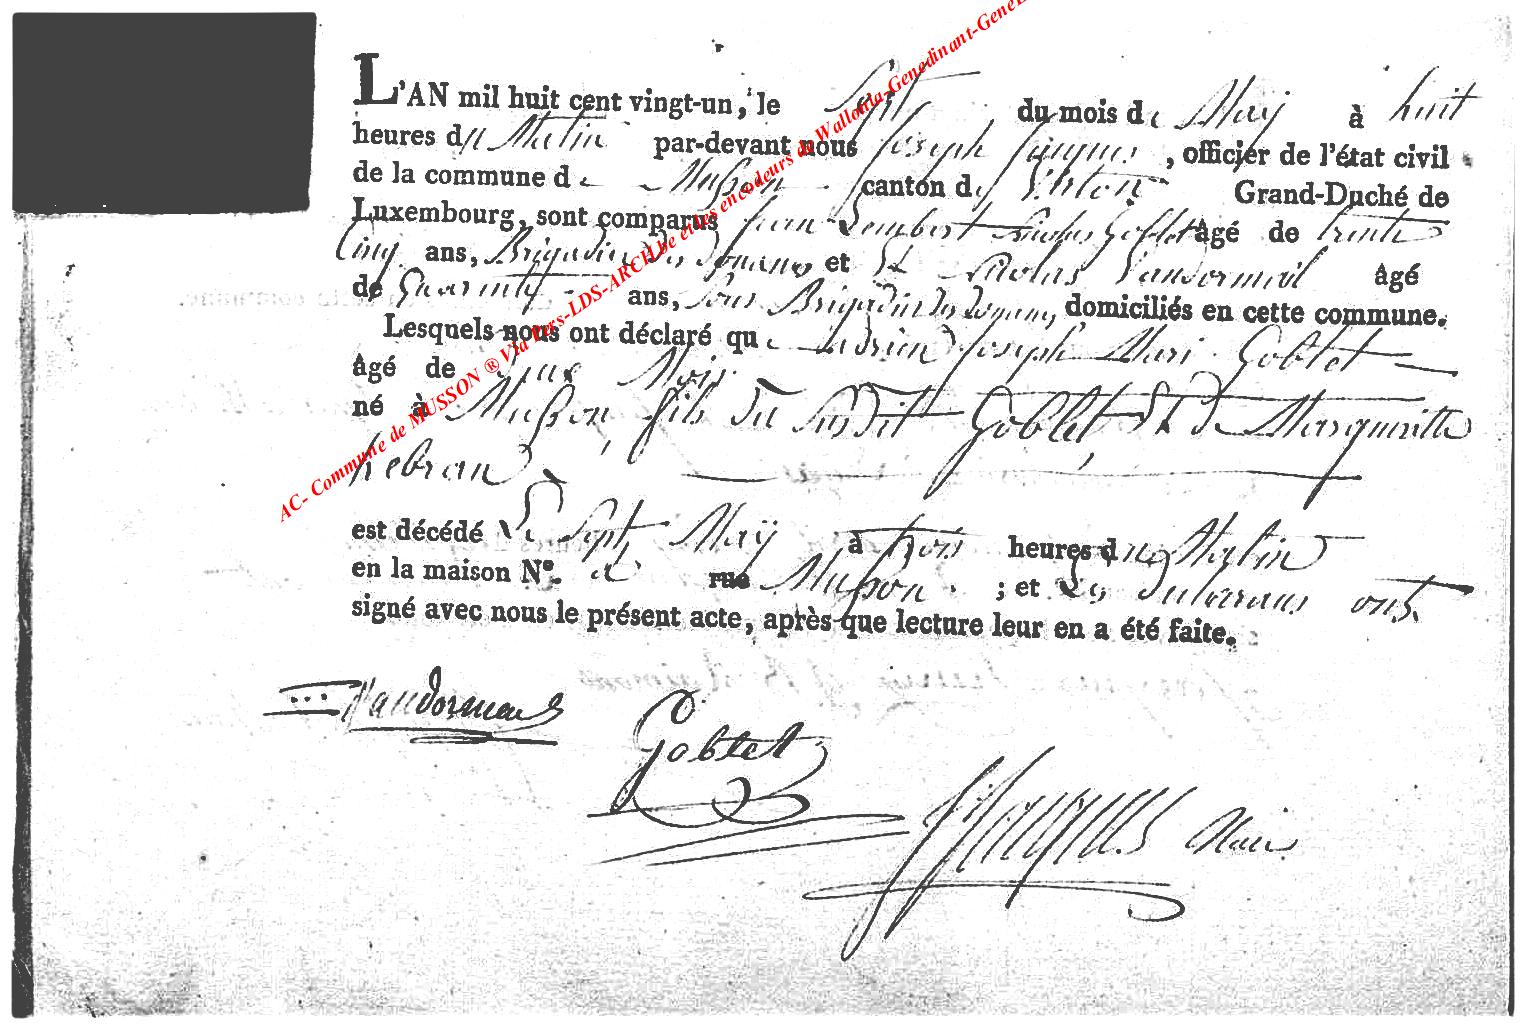 L'AN mil huit cent vingt-un, le Sept du mois de May à huit
heures du Matin par-devant nous Joseph Jacques, officier de l'état civil
de la commune de Musson canton de Virton Grand-Duché de
Luxembourg, sont comparus Jean Lambert Nicolas Goblet âgé de trente
Cinq ans, Brigadier des douanes et Nicolas Vandormeal âgé
de Quarante ans, Sous Brigadier des douanes, domiciliés en cette commune.
Lesquels nous ont déclaré que Adrien Joseph Mari Goblet
âgé de Mois
né à Musson, fils du Susdit Goblet, et de Margueritte
hebran
est décédé Le Sept May à trois heures du Matin
en la maison N°. rue Musson ; et Les declarans ont
signé avec nous le présent acte, après que lecture leur en a été faite.
Vandormeal
Goblet
J Jacques Maire
AC- Commune de MUSSON ® Via Vers-LDS-ARCH.be et les encodeurs de Wallonia-Genedinant-GeneL